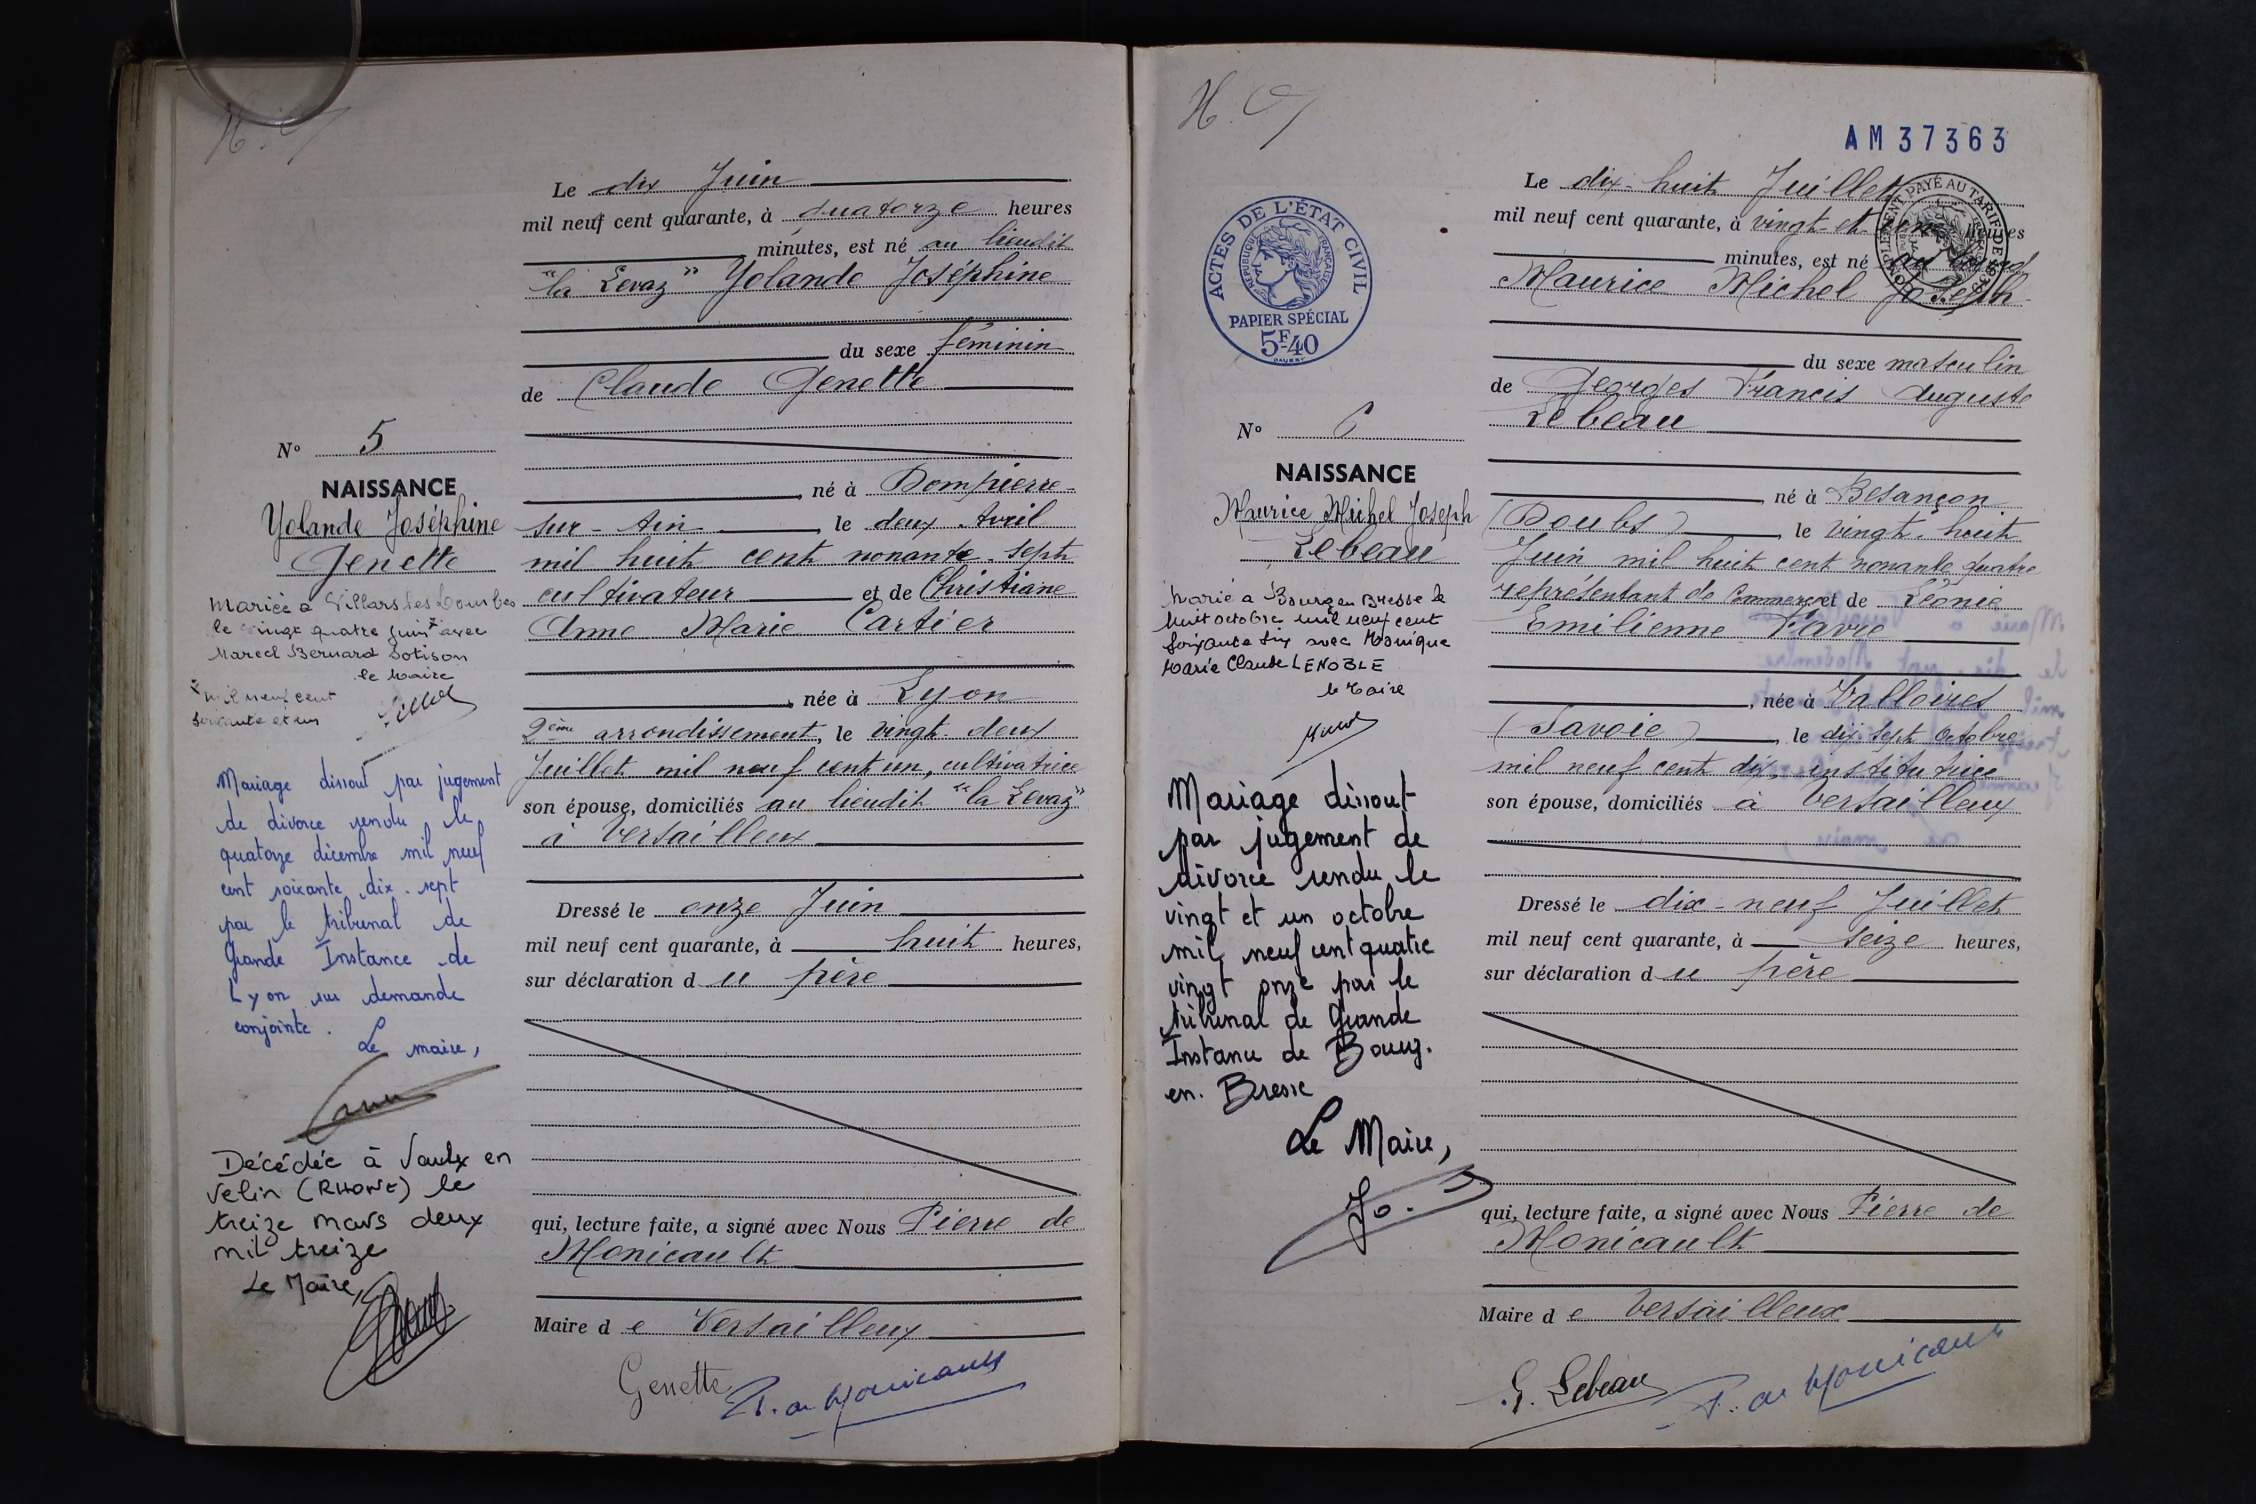 H. C
Le dix Juin
mil neuf cent quarante, à quatorze heures
minutes, est né au lieudit
"la Levaz" Yolande Joséphine
du sexe féminin
de Claude Genette
N° 5
NAISSANCE
Yolande Joséphine
Genette
né à Dompierre-
sur-Ain, le deux Avril
mil huit cent nonante-sept
cultivateur et de Christiane
Anne Marie Cartier
, née à Lyon
2ème arrondissement, le vingt-deux
Juillet mil neuf cent un, cultivatrice
son épouse, domiciliés au lieudit "la Levaz"
à Versailleux
Dressé le onze Juin
mil neuf cent quarante, à huit heures,
sur déclaration du père
qui, lecture faite, a signé avec Nous Pierre de
Monicault
Maire de Versailleux
Genette P. de Monicault
Mariée à Villars les Dombes
le vingt quatre juin x avec
Marcel Bernard Sotison
le Maire
x mil neuf cent
soixante et un
Mariage dissout par jugement
de divorce rendu le
quatorze décembre mil neuf
cent soixante dix-sept
par le tribunal de
Grande Instance de
Lyon sur demande
conjointe.
Le maire,
Décédée à Vaulx en
Velin (RHONE) le
treize mars deux
mil treize
Le Maire,
H. C
AM37363
ACTES DE L'ÉTAT CIVIL
RÉPUBLIQUE FRANÇAISE
PAPIER SPÉCIAL
5F40
COMPLÉMENT PAYÉ AU TARIF DE
Le dix-huit Juillet
mil neuf cent quarante, à vingt-et-une heures
minutes, est né au
Maurice Michel Joseph
du sexe masculin
de Georges Francis Auguste
Lebeau
N° 6
NAISSANCE
Maurice Michel Joseph
Lebeau
né à Besançon
(Doubs), le vingt-huit
Juin mil huit cent nonante quatre
représentant de Commerce et de Léonie
Emilienne Favre
, née à Valloires
(Savoie), le dix sept Octobre
mil neuf cent dix, institutrice
son épouse, domiciliés à Versailleux
Dressé le dix-neuf Juillet
mil neuf cent quarante, à seize heures,
sur déclaration du père
qui, lecture faite, a signé avec Nous Pierre de
Monicault
Maire de Versailleux
G. Lebeau P. de Monicault
Marié à Bourg en Bresse le
huit octobre mil neuf cent
soixante six avec Monique
Marie Claude LENOBLE
le Maire
Mariage dissout
par jugement de
divorce rendu le
vingt et un octobre
mil neuf cent quatre
vingt onze par le
tribunal de Grande
Instance de Bourg.
en. Bresse
Le Maire,